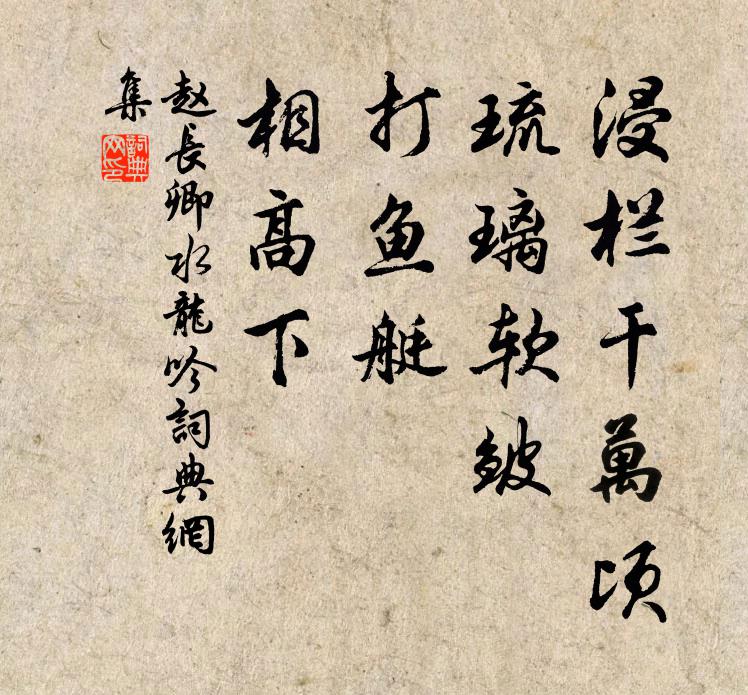 浸栏干萬顷
琉璃软皱
打鱼艇
相高下
赵長卿水龍吟詞典網
集
詞典網印